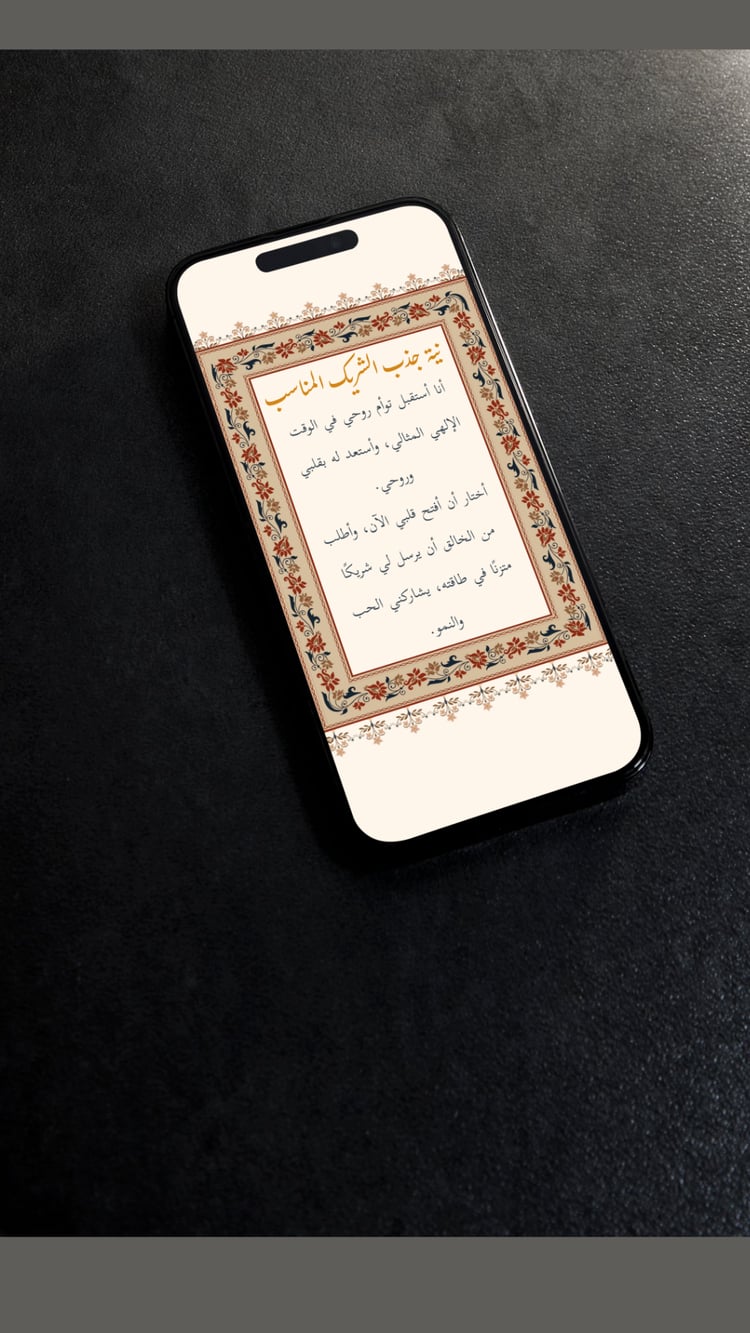 نية جذب الشريك المناسب
أنا أستقبل توأم روحي في الوقت
الإلهي المثالي، وأستعد له بقلبي
وروحي.
أختار أن أفتح قلبي الآن، وأطلب
من الخالق أن يرسل لي شريكًا
متزنًا في طاقته، يشاركني الحب
والنمو.